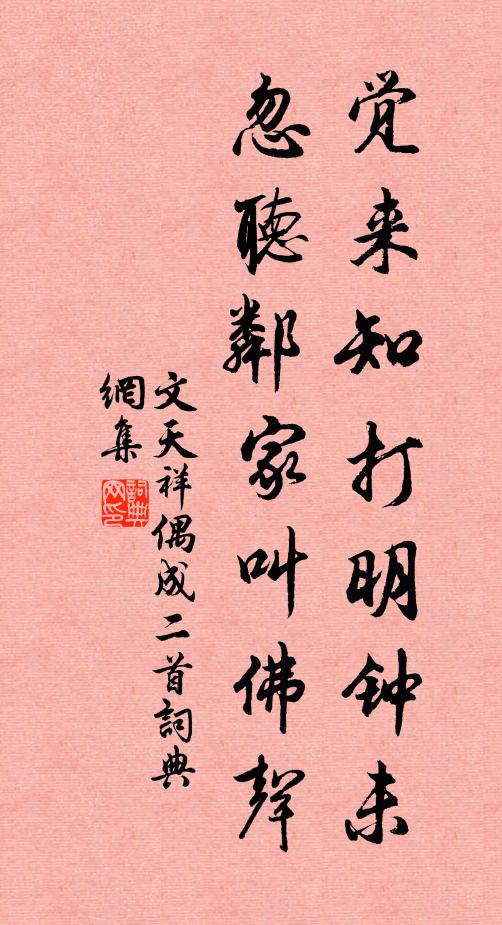 觉来知打明钟未
忽聴鄰家叫佛聲
文天祥偶成二首詞典
網集
詞典
网印